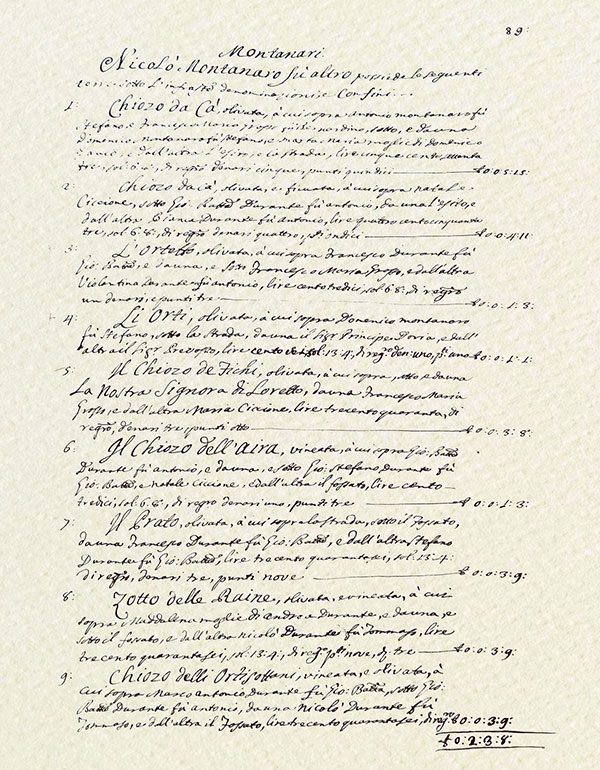 89:
Montanari
Nicolò Montanaro fù altro possiede le seguenti
terre sotto l'infratte denominazioni e Confini
1: Chiozo da Cà, olivata, à cui sopra Antonio montanaro fù
Stefano, e Francesco Maria Grosso fù Bernardino, sotto, e da una
Domenico Montanaro fù Stefano, e Maria moglie di Domenico
e dall'altra e la strada, lire cinque cento
tre, sol: 6:8:, di registro denari cinque, punti quindici £ 0:0:5:15:
2: Chiozo da Cà, olivata, e ficata, à cui sopra natale
Ciccione, sotto Gio: Batta Durante fù Antonio, da una l'istesso, e
dall'altra Durante fù Antonio, lire quattro cento cinquanta
tre, sol: 6:8:, di registro denari quattro, p:ti undici £ 0:0:4:11:
3: L'Ortetto, olivata, à cui sopra Francesco Durante fù
Gio: Batta, e da una, e sotto Francesco Maria Grosso, e dall'altra
Violantina Durante fù Antonio, lire cento tredici, sol: 6:8: di registro
un denari, e punti tre £ 0:0:1:3:
4: Li Orti, olivata, à cui sopra Domenico montanaro
fù Stefano, sotto la strada, da una il Sig:r Principe Doria, e dall'
altra il Sig:r Prevosto, lire cento sol: 13:4:, di reg:o den: uno, p:ti uno £ 0:0:1:1:
5: Il Chiozo de Fichi, olivata, à cui sopra, sotto e da una
La Nostra Signora di Loretto, da una Francesco Maria
Grosso, e dall'altra Maria Ciccione, lire trecento quaranta, di
registro, denari tre, punti otto £ 0:0:3:8:
6: Il Chiozo dell'aira, vineata, à cui sopra Gio: Batta
Durante fù Antonio, e da una, e sotto Gio: Stefano Durante fù
Gio: Batta, e natale Ciccione, e dall'altra il fossato, lire cento
tredici, sol: 6:8:, di registro denari uno, punti tre £ 0:0:1:3:
7: Il Prato, olivata, à cui sopra la strada, sotto il Fossato,
da una Francesco Durante fù Gio: Batta, e dall'altra Stefano
Durante fù Gio: Batta, lire trecento quaranta sei, sol: 13:4:
di registro, denari tre, punti nove £ 0:0:3:9:
8: Zotto delle Raine, olivata, e vineata, à cui
sopra Maddalena moglie di Andrea Durante, e da una, e
sotto il fossato, e dall'altra Nicolò Durante fù Tommaso, lire
trecento quaranta sei, sol: 13:4:, di reg:o p:ti nove, d: tre £ 0:0:3:9:
9: Chiozo delli Orti sottani, vineata, e olivata, à
cui sopra Marco Antonio Durante fù Gio: Batta, sotto Gio:
Batta Durante fù Antonio, da una Nicolò Durante fù
Tommaso, e dall'altra il Fossato, lire trecento quaranta sei, di reg:o £ 0:0:3:9:
£ 0:2:3:8: